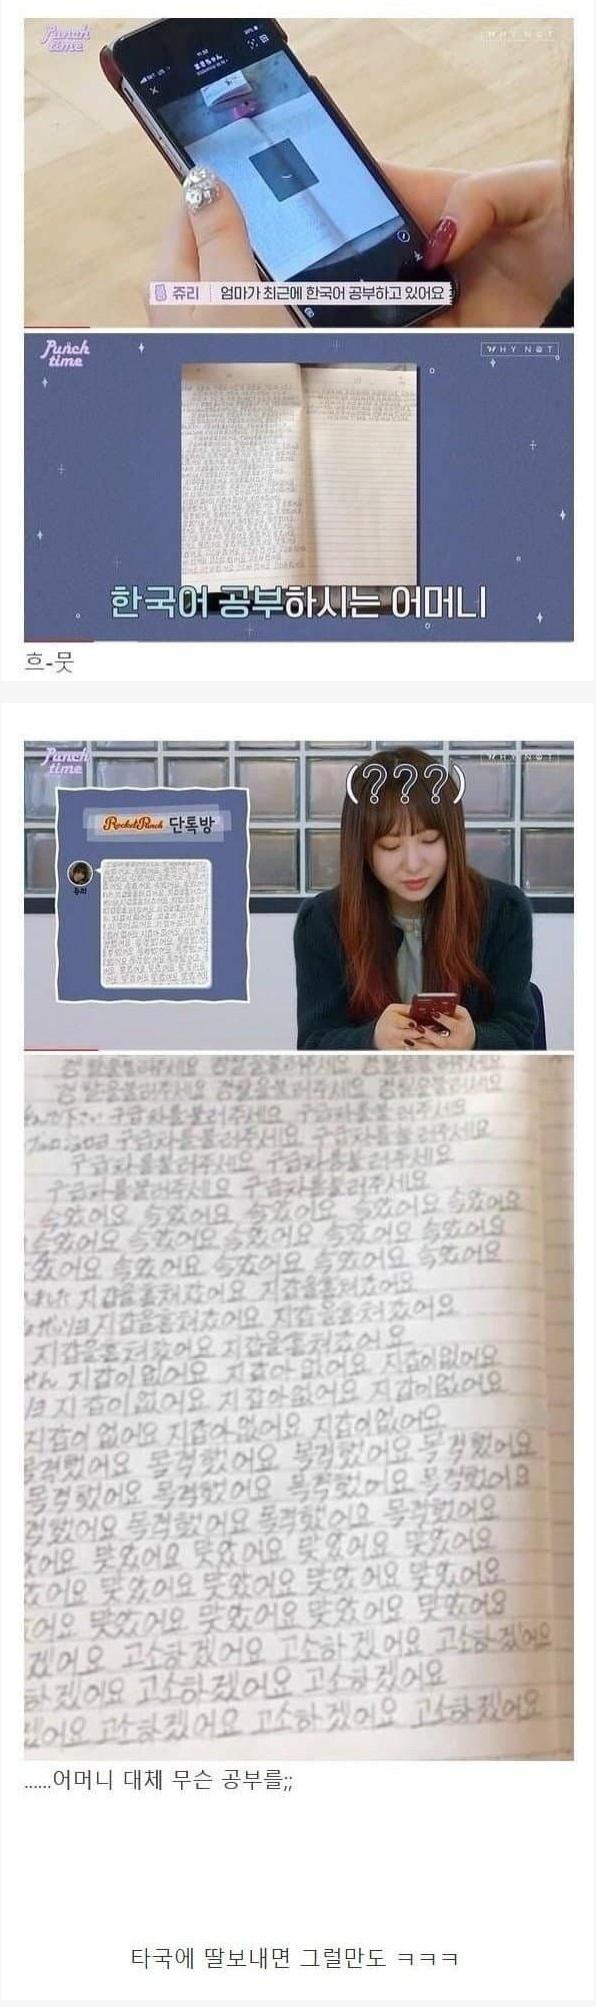 Punch time
WHY NOT
쥬리 엄마가 최근에 한국어 공부하고 있어요
Punch time
WHY NOT
한국어 공부하시는 어머니
흐-뭇
Punch time
WHY NOT
(???)
Rocket Punch 단톡방
쥬리
경찰을불러주세요 경찰을불러주세요 경찰을불러주세요
경찰을불러주세요 경찰을불러주세요 경찰을불러주세요
구급차를불러주세요 구급차를불러주세요
구급차를불러주세요 구급차를불러주세요
구급차를불러주세요 구급차를불러주세요
구급차를불러주세요 구급차를불러주세요
속았어요 속았어요 속았어요 속았어요 속았어요
속았어요 속았어요 속았어요 속았어요 속았어요
았어요 속았어요 속았어요 속았어요 속았어요
ました 지갑을훔쳐갔어요 지갑을훔쳐갔어요
지갑을훔쳐갔어요 지갑을훔쳐갔어요
지갑을훔쳐갔어요 지갑을훔쳐갔어요
せん 지갑이없어요 지갑이없어요 지갑이없어요
지갑이없어요 지갑이없어요 지갑이없어요
지갑이없어요 지갑이없어요 지갑이없어요
목격했어요 목격했어요 목격했어요 목격했어요
목격했어요 목격했어요 목격했어요 목격했어요
격했어요 목격했어요 목격했어요 목격했어요
어요 맞았어요 맞았어요 맞았어요 맞았어요
어요 맞았어요 맞았어요 맞았어요 맞았어요
어요 맞았어요 맞았어요 맞았어요 맞았어요
겠어요 고소하겠어요 고소하겠어요 고소하겠어요
하겠어요 고소하겠어요 고소하겠어요
겠어요 고소하겠어요 고소하겠어요 고소하겠어요
......어머니 대체 무슨 공부를;;
타국에 딸보내면 그럴만도 ㅋㅋㅋ